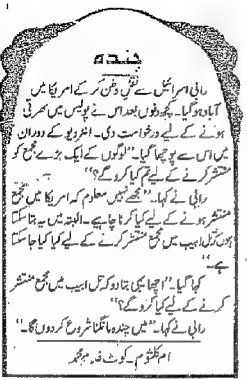 چندہ
رابی اسرائیل سے نقل وطن کر کے امریکا میں
آباد ہو گیا۔ کچھ دنوں بعد اس نے پولیس میں بھرتی
ہونے کے لیے درخواست دی۔ انٹرویو کے دوران
میں اس سے پوچھا گیا۔ ”لوگوں کے ایک بڑے مجمع کو
منتشر کرنے کے لیے تم کیا کرو گے؟“
رابی نے کہا۔ ”مجھے نہیں معلوم کہ امریکا میں مجمع
منتشر ہونے کے لیے کیا کرنا چاہیے۔ البتہ میں یہ بتا سکتا
ہوں کہ تل ابیب میں مجمع منتشر کرنے کے لیے کیا کیا جا سکتا
ہے۔“
کہا گیا۔ ”اچھا یہی بتا دو کہ تل ابیب میں مجمع منتشر
کرنے کے لیے کیا کرو گے؟“
رابی نے کہا۔ ”میں چندہ مانگنا شروع کر دوں گا۔“
ام کلثوم۔ کوٹ